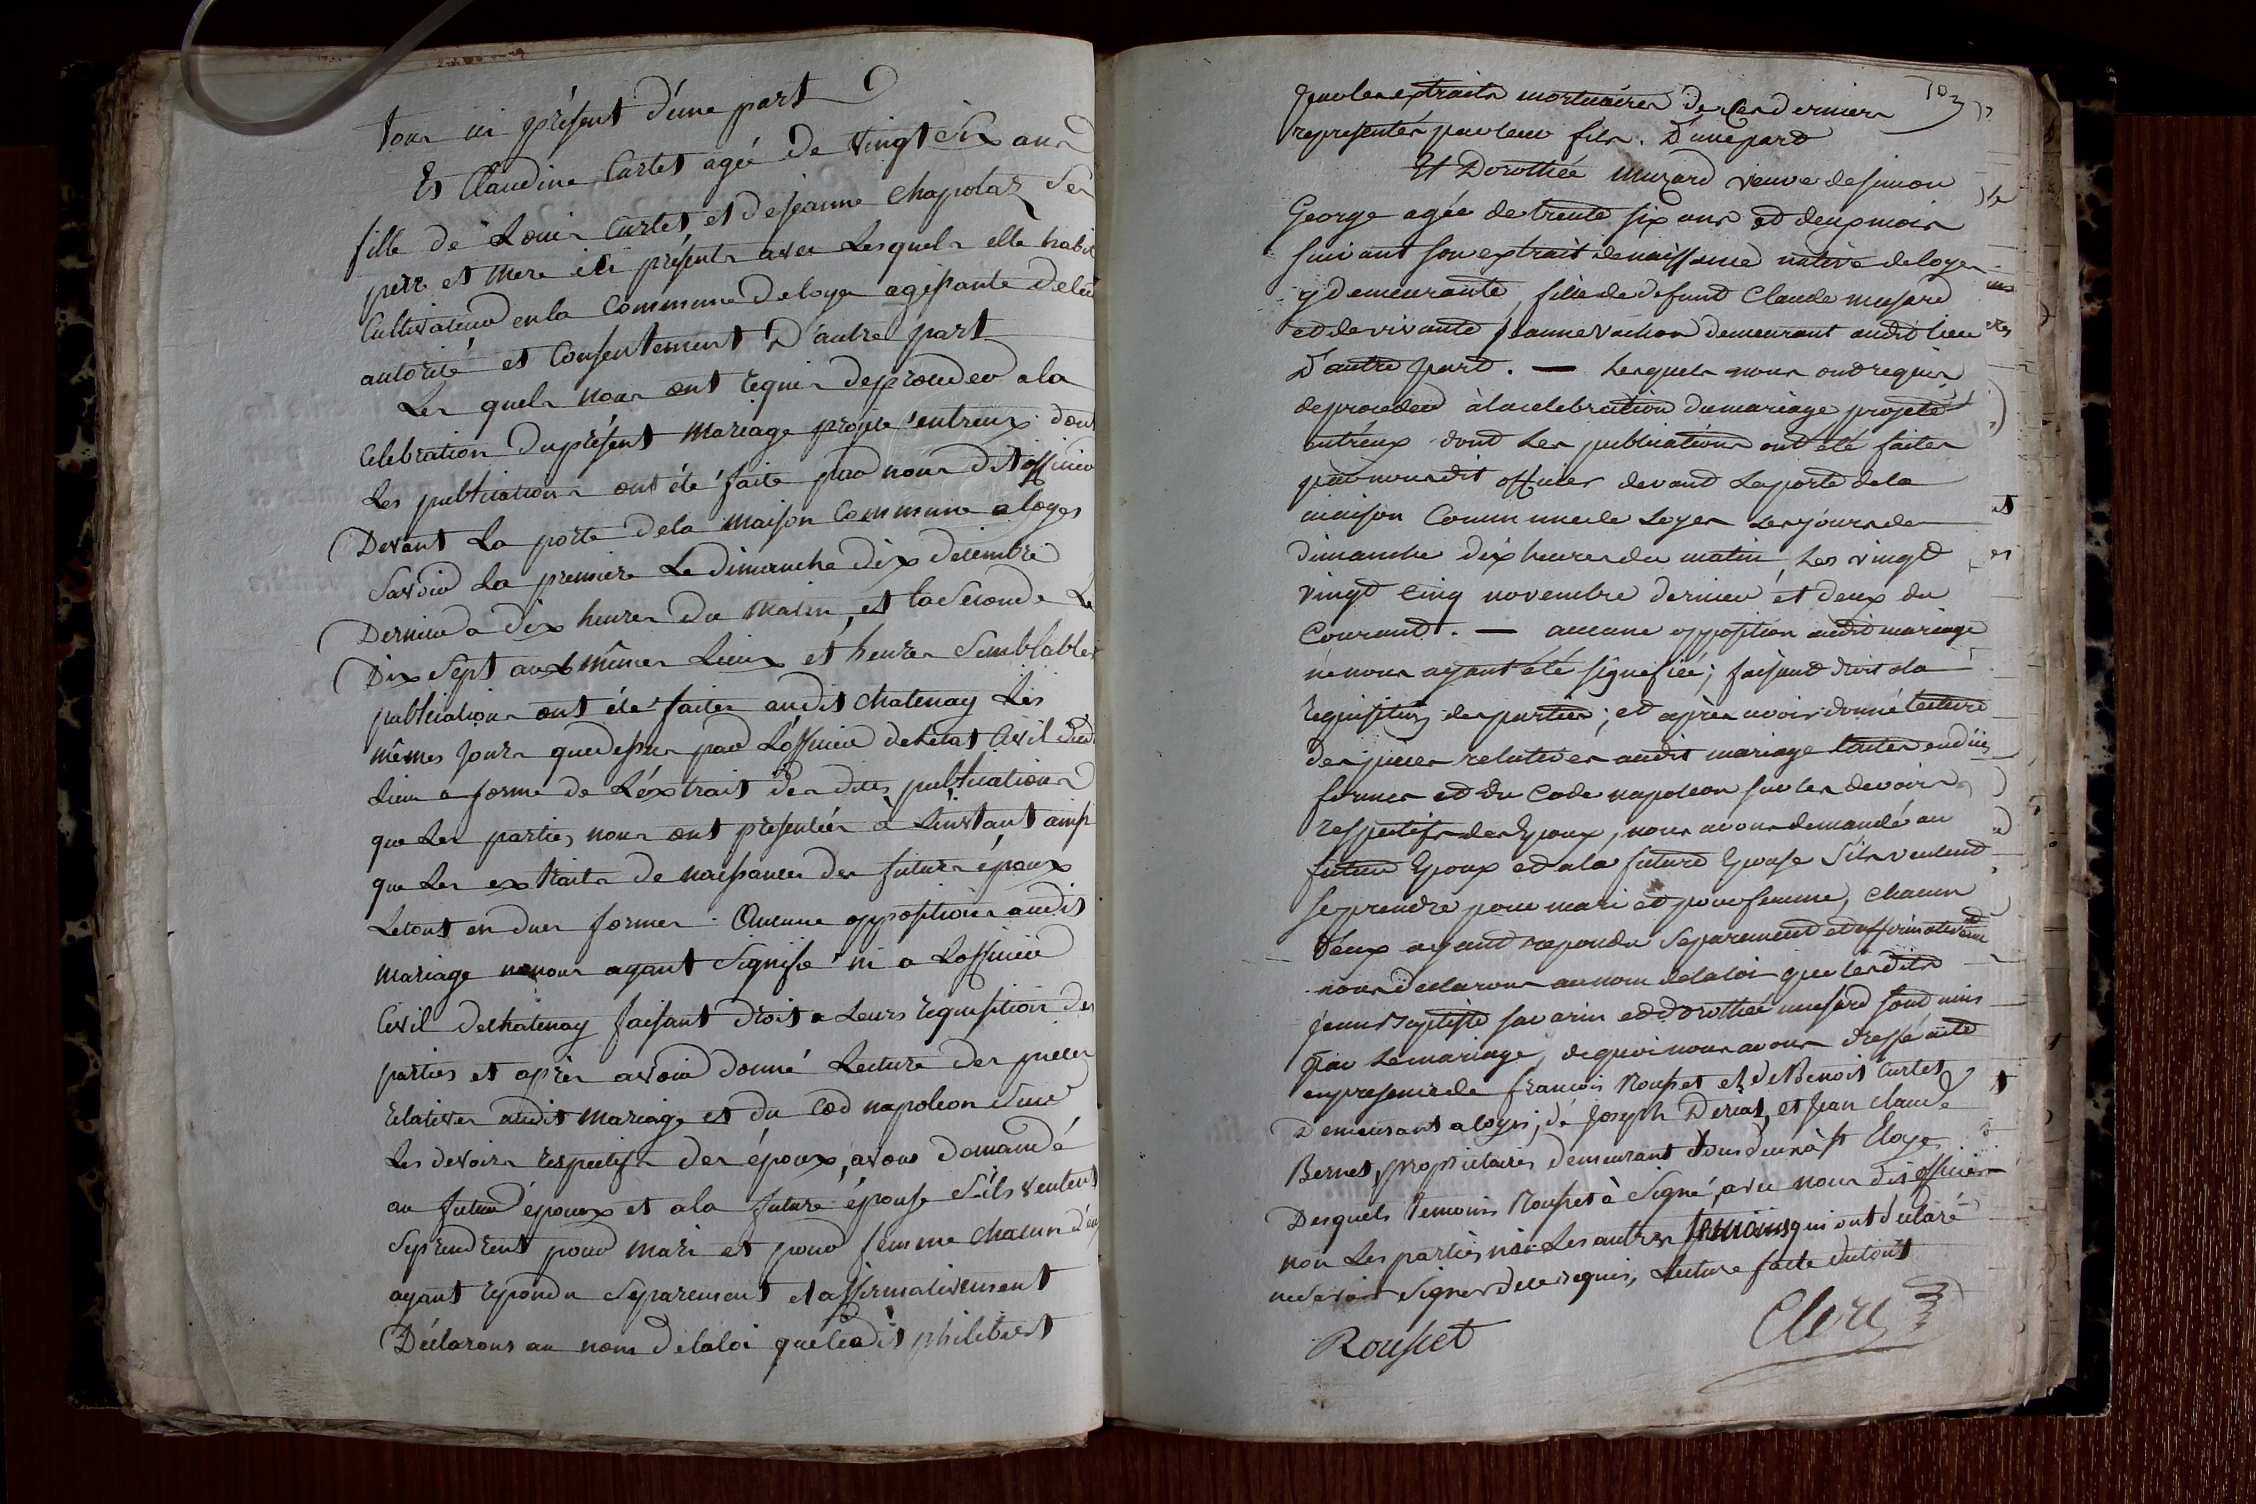 tous ici présent d'une part
Et Claudine Curtet agée de vingt six ans
fille de Louis Curtet, et de jeanne Chapolaz ses
pere et mere ici présents avec Lesquels elle habit
Cultivateur en la Commune de loyes agissante de leur
autorité et Consentement D'autre part
Les quels nous ont requis de proceder a la
Celebration du présent mariage projeté entreux dont
Les publications ont été faite par nous dit officier
Devant La porte de la maison Commune a loyes
Savoir La premiere Le dimanche dix decembre
Dernier a dix heures du matin, et la Seconde Le
Dix Sept aux mêmes Lieux et heures Semblables
publications ont été faites audit chatenay Les
mêmes jours que dessus par L'officier de letat Civil dudit
Lieu a forme de L'éxtrait des dites publications
que Les parties nous ont presentées à L'instant ainsi
que Les extraits de naissances des futurs époux
Le tout en dues formes. Aucune opposition audit
mariage ne nous ayant Signifié ni a Lofficier
Civil de chatenay faisant droit a Leurs requisition des
parties et après avoir donné Lecture des pieces
relatives audit mariage et du Cod napoleon Sur
Les devoirs respectifs des époux, avons demandé
au futur époux et a la future épouse S'ils veulent
Se prendrent pour mari et pour femme chacun d'eux
ayant repondu Separement et affirmativement
Déclarons au nom de la loi que ledit philibert
103
par les extraits mortuaires de ces derniers
representés par leur fils. D'une part
Et Dorothée muzard veuve de simon
George agée de trente six ans et deux mois
suivant son extrait de naissance native de loyes
y demeurante, fille de defunt Claude musard
et de vivante jeanne vachon demeurant audit lieu
D'autre part. — Lesquels nous ont requis
de proceder à la celebration du mariage projeté
entréux dont Les publications ont été faites
par nous dit officier devant La porte de la
maison Commune de Loyes Les jours de
dimanche dix heures du matin, Les vingt
vingt cinq novembre dernier et deux du
Courant. — aucune opposition audit mariage
ne nous ayant été signifiée; faisant droit a la
requisition des parties; et après avoir donné lecture
des pieces relatives audit mariage toutes en dües
formes et du Code napoleon sur les devoirs
respectifs des Epoux, nous avons demandé au
futur Epoux et a la future Epouse S'ils veulent
se prendre pour mari et pour femme, chacun
d'eux ayant repondu Separement et affirmativement
nous declarons au nom de la loi que lesdits
jean Baptiste savarin et dorothée musard sont unis
par Le mariage, de quoi nous avons dressé acte
en presence de francois Rousset et de Benoit Curtet
Demeurant a loyes; de joseph Derias, et jean claude
Bernet, propriétaires demeurant tous deux à st Eloye
Desquels temoins Rousset à Signé, avec nous dit officier
non Les parties ni Les autres temoins qui ont déclaré
ne savoir Signer de ce requis, Lecture faite du tout
Rousset
Clerc